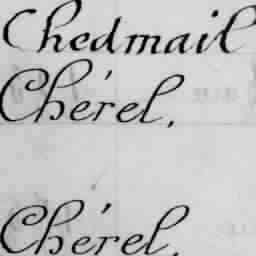 Chedmail
Chérel.
Chérel.